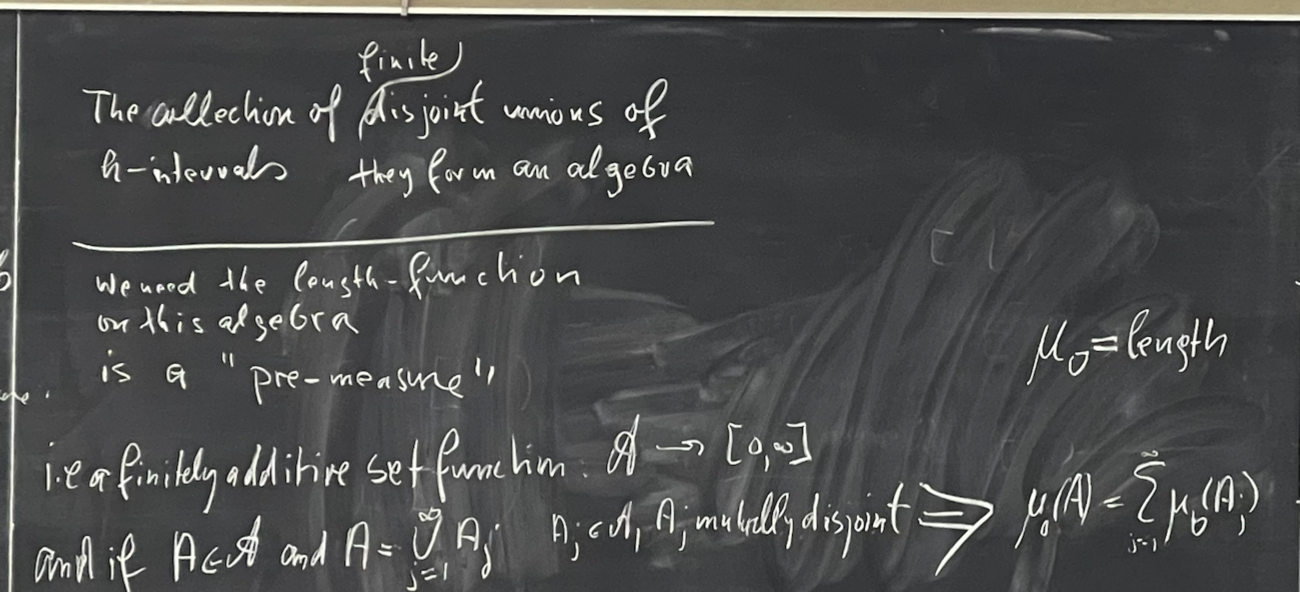 finite
The collection of disjoint unions of
h-intervals they form an algebra
we need the length-function
on this algebra
is a "pre-measure"
μ₀ = length
i.e a finitely additive set function. 𝒜 → [0,∞]
and if A∈𝒜 and A = ⋃_{j=1}^{∞} A_j A_j ∈ 𝒜, A_j mutually disjoint ⟹ μ₀(A) = ∑_{j=1}^{∞} μ₀(A_j)